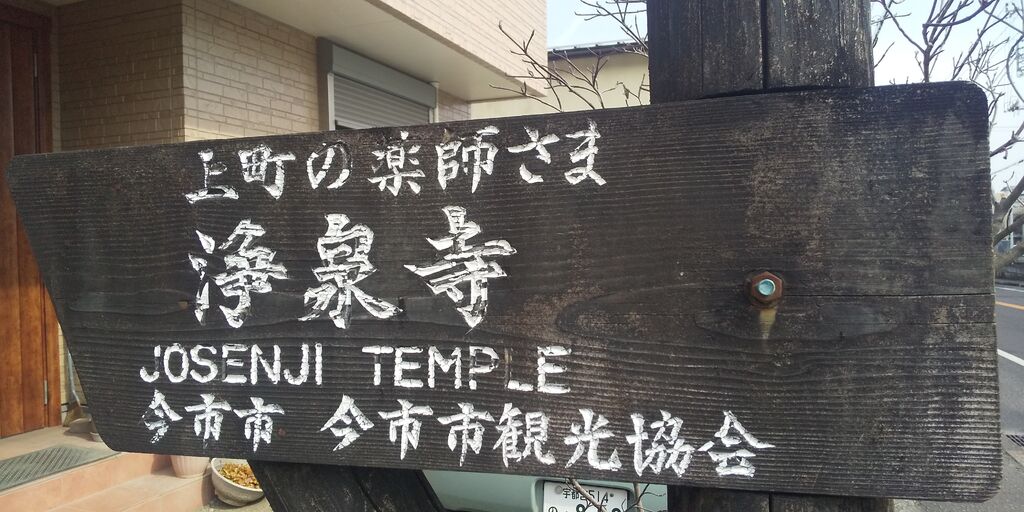 上町の薬師さま
浄泉寺
JOSENJI TEMPLE
今市市 今市市観光協会